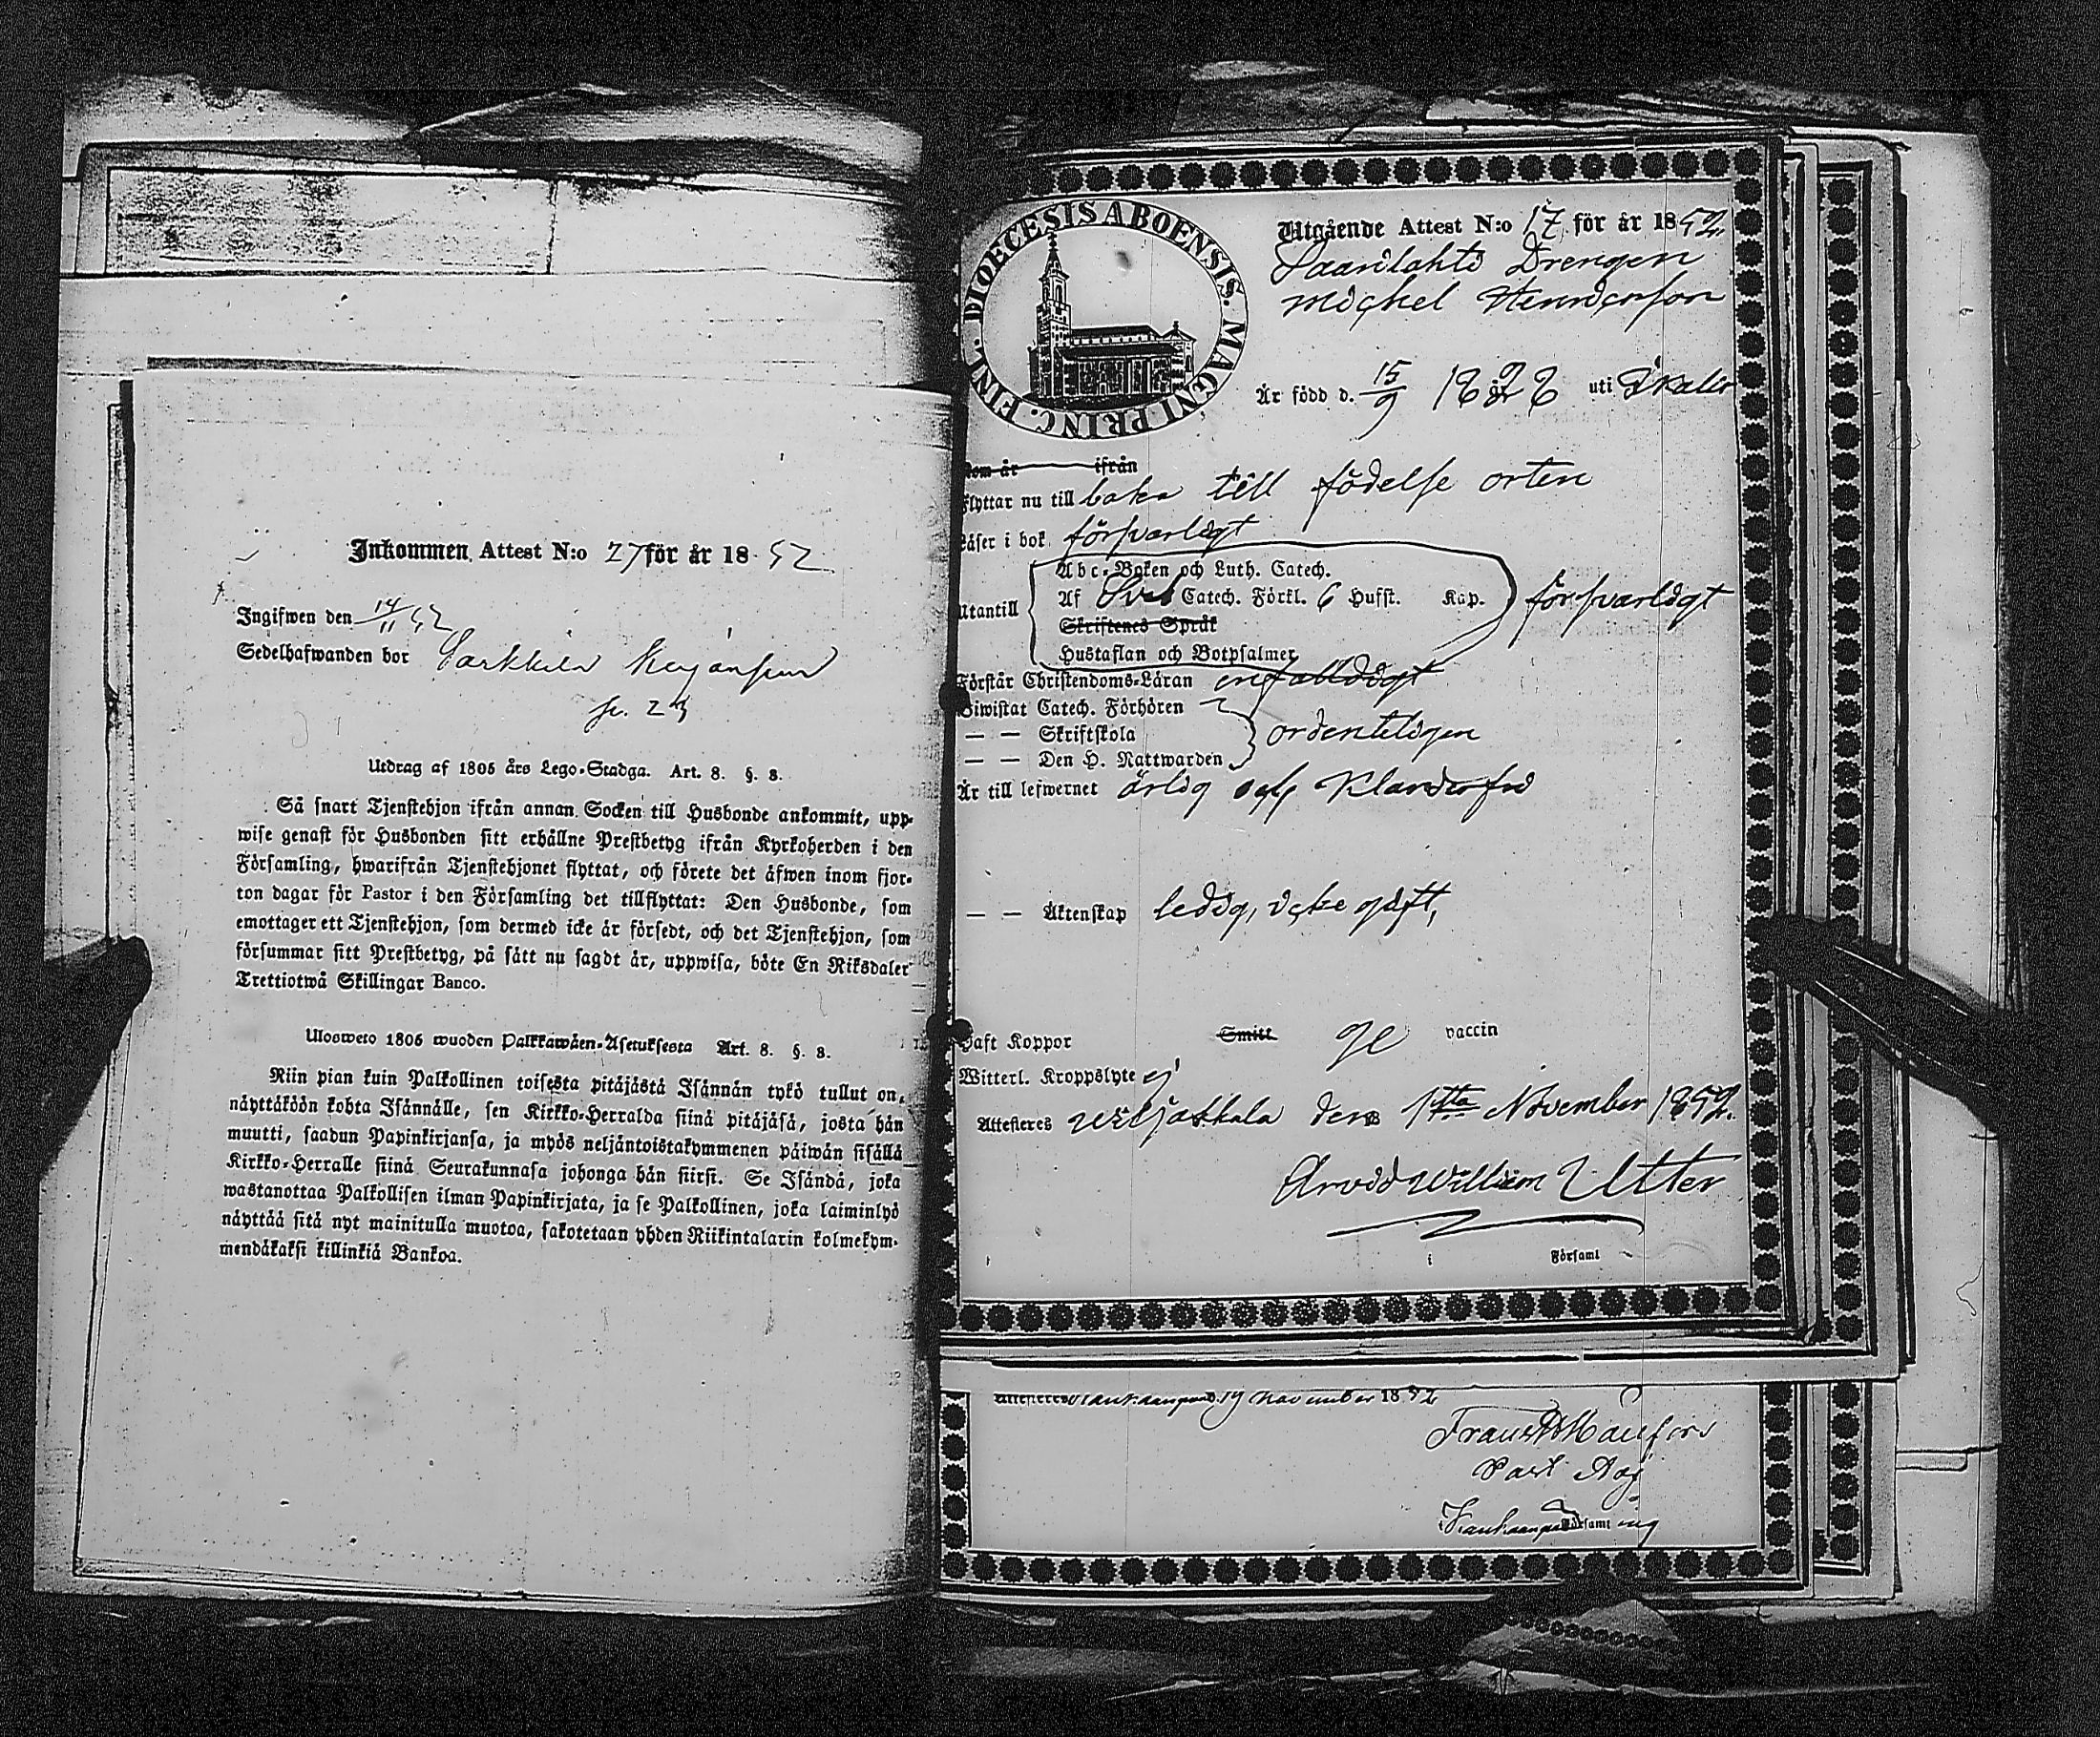 Inkommen Attest N:o 27 för år 1852
Ingifwen den 14/11 52
Sedelhafwanden bor Sarkkila
Utdrag af 1805 års Lego-Stadga. Art. 8. §. 8.
Så snart Tjenstehjon ifrån annan Socken till Husbonde ankommit, upp-
wise genast för Husbonden sitt erhållne Prestbetyg ifrån Kyrkoherden i den
Församling, hwarifrån Tjenstehjonet flyttat, och förete det äfwen inom fjor-
ton dagar för Pastor i den Församling det tillflyttat: Den Husbonde, som
emottager ett Tjenstehjon, som dermed icke är försedt, och det Tjenstehjon, som
försummar sitt Prestbetyg, på sätt nu sagdt är, uppwisa, böte En Riksdaler
Trettiotwå Skillingar Banco.
Ulosweto 1805 wuoden Palkkawäen-Asetuksesta Art. 8. §. 8.
Niin pian kuin Palkollinen toisesta pitäjästä Isännän tykö tullut on,
näyttäköön kohta Isännälle, sen Kirkko-Herralda siinä pitäjäsä, josta hän
muutti, saadun Papinkirjansa, ja myös neljäntoistakymmenen päiwän sisällä
Kirkko-Herralle siinä Seurakunnasa johonga hän siirsi. Se Isändä, joka
wastanottaa Palkollisen ilman Papinkirjata, ja se Palkollinen, joka laiminlyö
näyttää sitä nyt mainitulla muotoa, sakotetaan yhden Riikintalarin kolmekym-
mendäkaksi killinkiä Bankoa.
FINL. DIOECESIS ABOENSIS. MAGNI PRINC.
Utgående Attest N:o 17 för år 1852
Saarilahti Drengen
Michel Henricsson
Är född d. 15/9 1828 uti Ikalis
kom år ifrån
Flyttar nu till baka till födelse orten
Läser i bok försvarligt
Abc-Boken och Luth. Catech.
Utantill Af Sveb Catech. Förkl. 6 Hufst. Kap. försvarligt
Skriftenes Språk
Hustaflan och Botpsalmer
Förstår Christendoms-Läran enfalldigt
Biwistat Catech. Förhören
— — Skriftskola ordenteligen
— — Den H. Nattwarden
Är till lefwernet ärlig och klanderfri
— — Äktenskap ledig, icke gift,
Haft Koppor Smitt ge vaccin
Witterl. Kroppslyte ej
Attesteres Wiljakkala den 1sta November 1852.
Arvid William Utter
i Församl
Attesteres Kankaanpää d. 19 November 1852
Past Adj
i Kankaanpää Församl ing